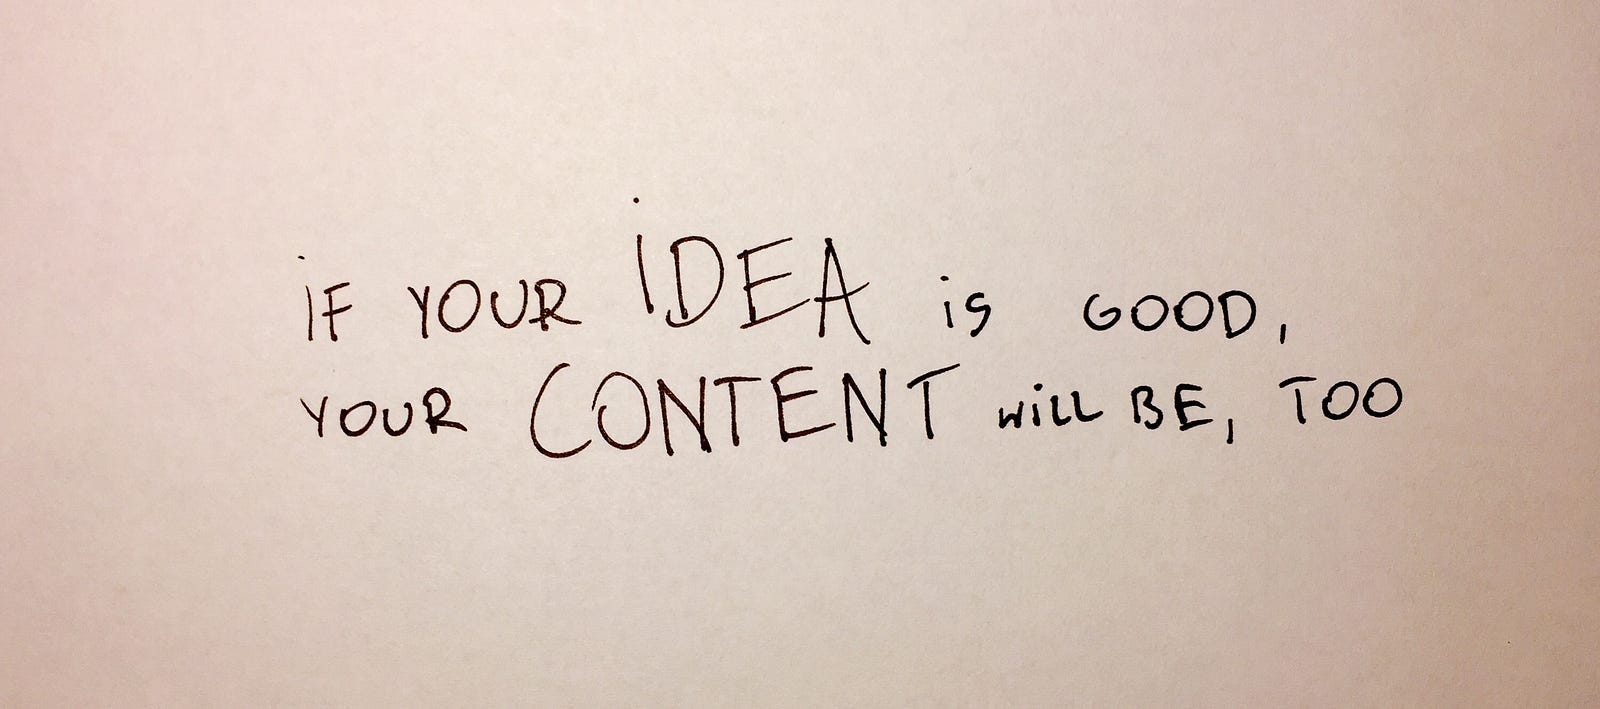 iF YOUR iDEA is GOOD,
YOUR CONTENT wiLL BE, TOO